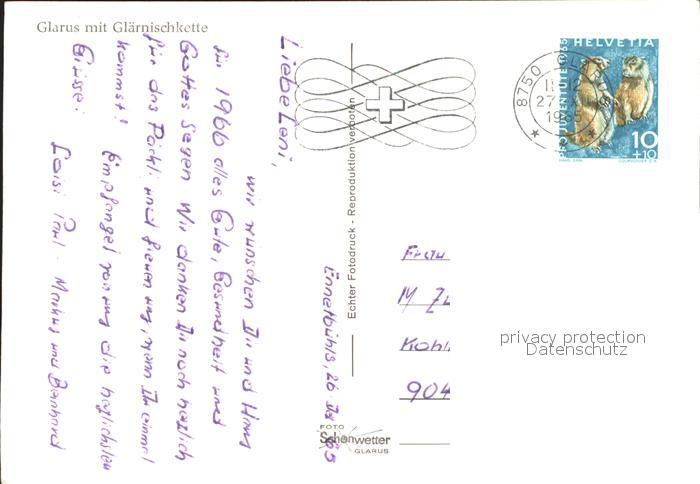 Glarus mit Glärnischkette
Liebe Leni,
wir wünschen Dir und Hans
für 1966 alles Gute, Gesundheit und
Gottes Segen Wir danken Dir noch herzlich
für das Päckli und freuen uns, wenn Ihr einmal
kommst! Empfanget von uns die herzlichsten
Grüsse:
Loisi Paul - Markus und Bernhard
Ennetbühls, 26. Dez 65
Echter Fotodruck - Reproduktion verboten
FOTO
Schönwetter
GLARUS
8750 GL
27
1965
HELVETIA
PRO JUVENTUTE 1965
10
+10
Frau
M Zu
Kohl
904
privacy protection
Datenschutz